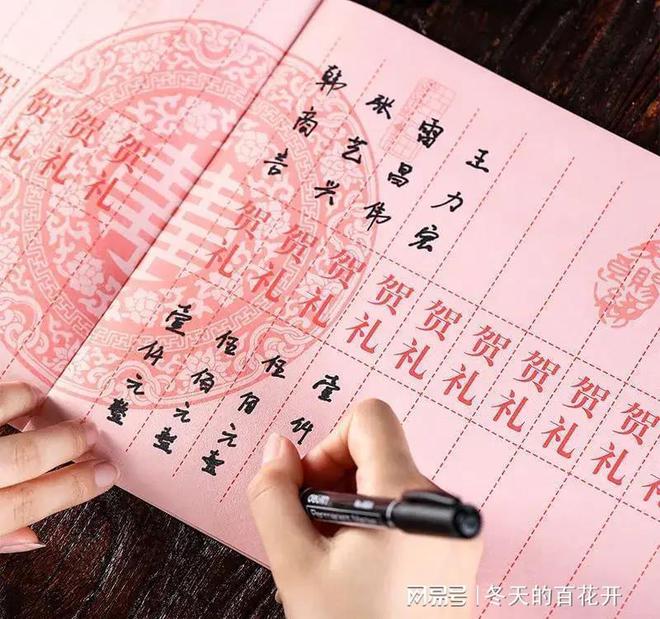 贺礼
贺礼
贺礼
贺礼
韩商言
贺礼
壹仟元整
张艺兴
贺礼
伍佰元整
雷昌伟
贺礼
伍佰元整
王力宏
贺礼
壹仟
贺礼
贺礼
贺礼
贺礼
贺礼
deli
Permanent Marker
网易号 | 冬天的百花开